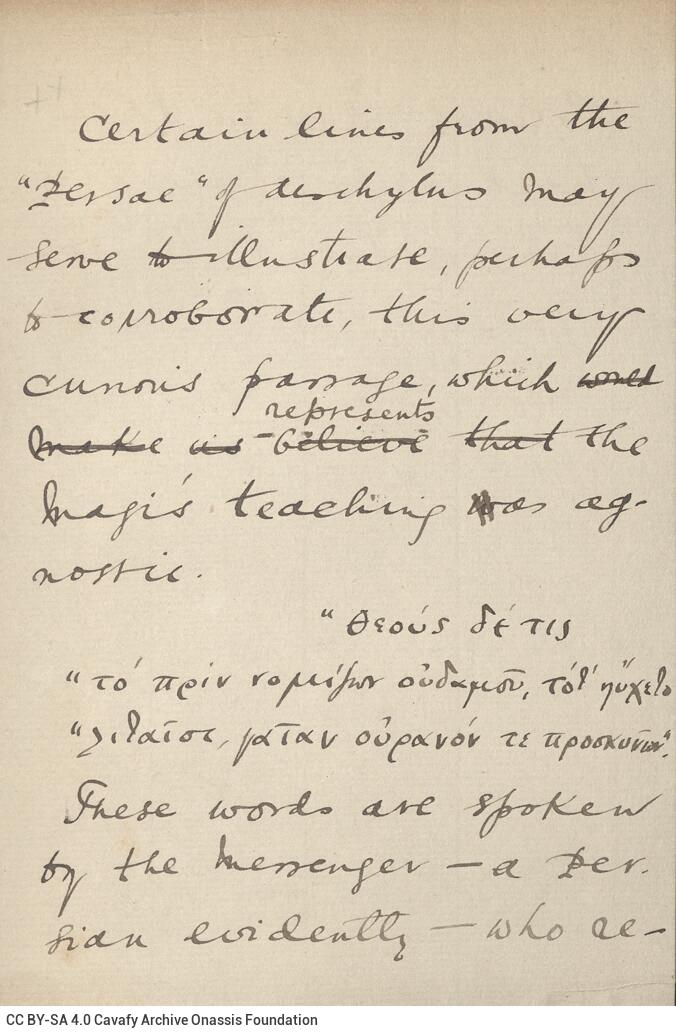 Certain lines from the
"Persae" of Aeschylus may
serve to illustrate, perhaps
to corroborate, this very
curious passage, which would
represents
make us believe that the
Magi's teaching was ag-
nostic.
"Θεούς δέ τις
"τό πρίν νομίζων ουδαμού, τότ' ηύχετο
"λιταίσι, γαίαν ουρανόν τε προσκυνών".
These words are spoken
by the Messenger — a Per-
sian evidently — who re-
CC BY-SA 4.0 Cavafy Archive Onassis Foundation